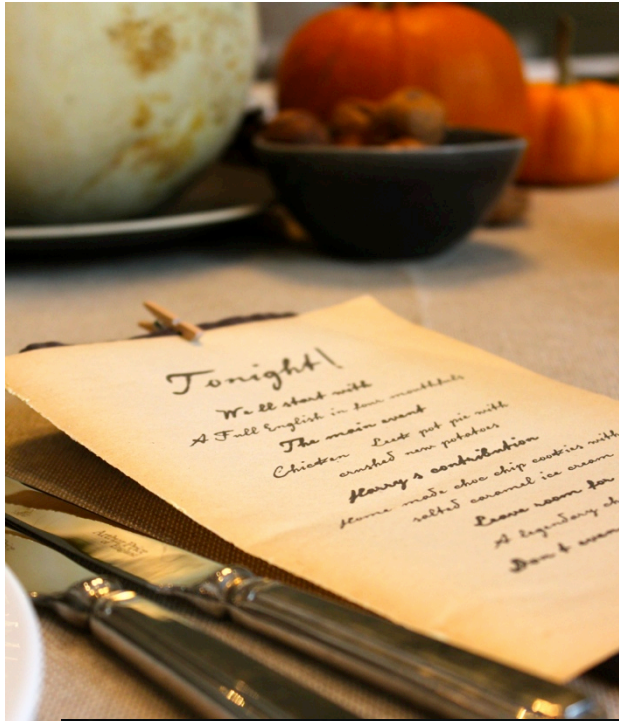 Tonight!
We ll start with
A Full English in four mouthfuls
The main event
Chicken Leek pot pie with
crushed new potatoes
Harry s contribution
Home made choc chip cookies with
salted caramel ice cream
Leave room for
A legendary
Don t
Arthur Price